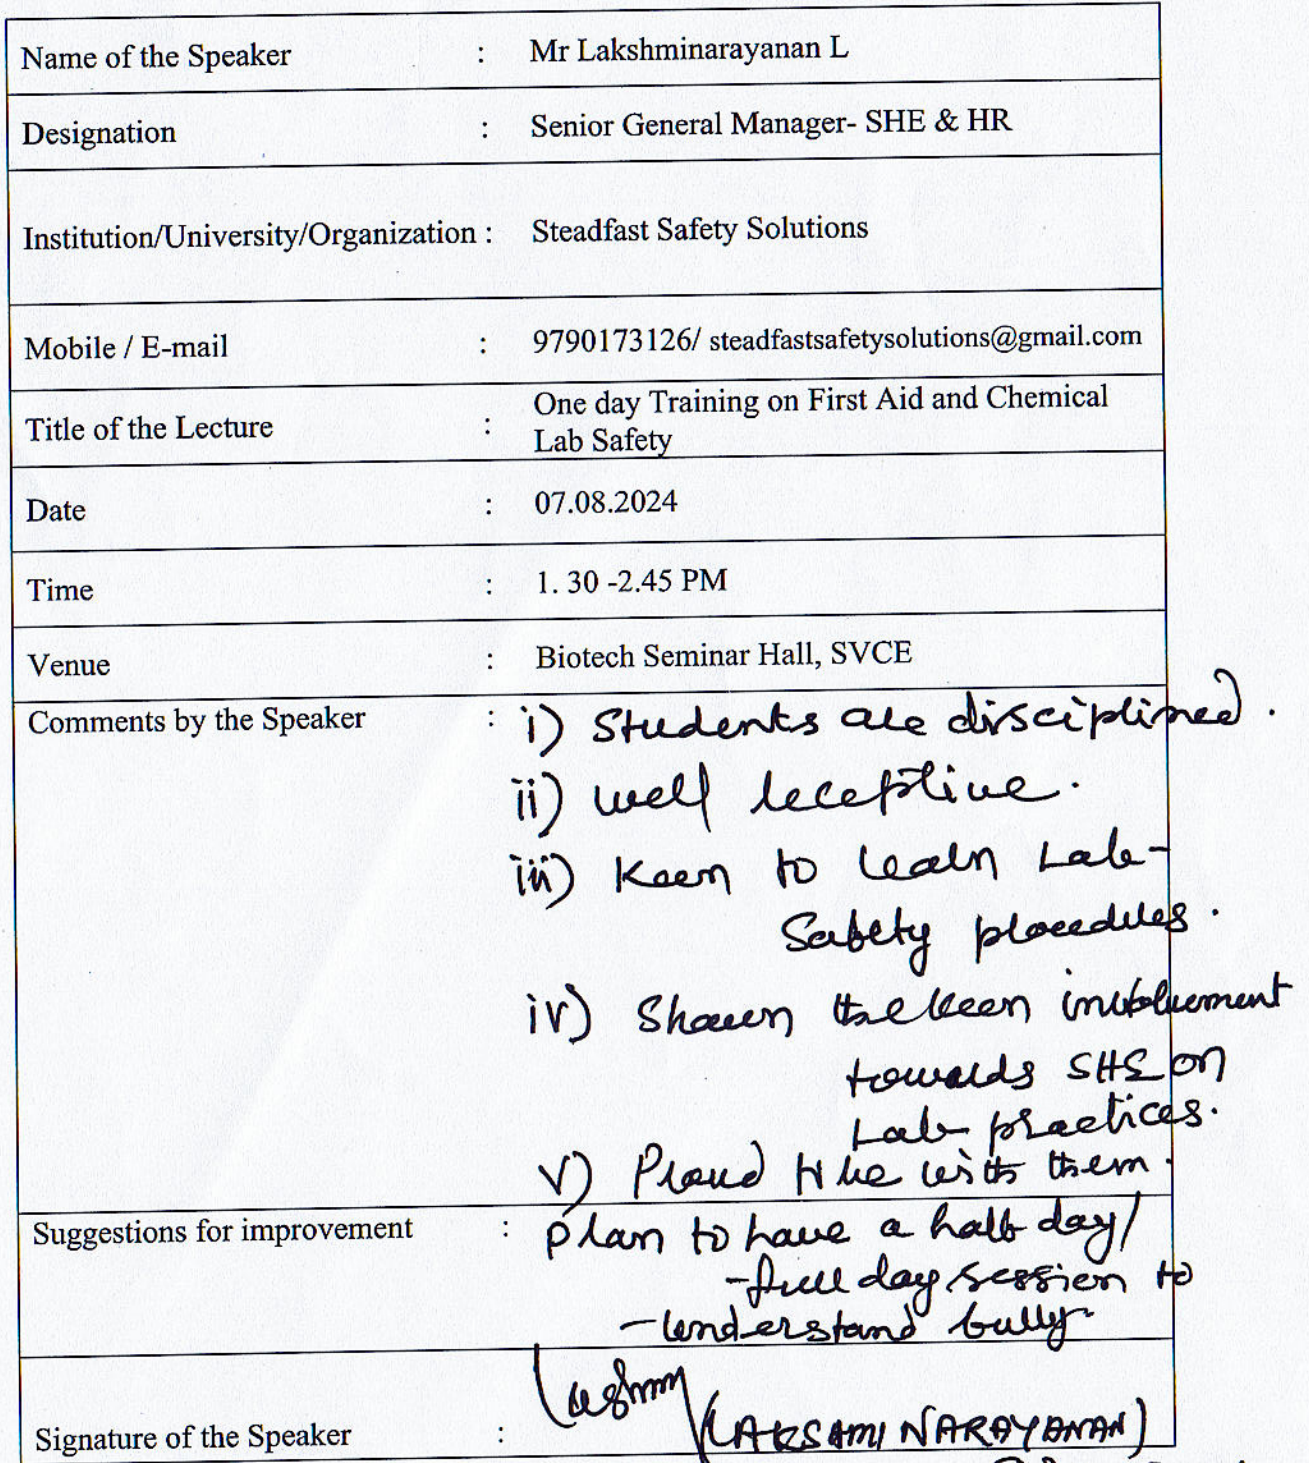 Name of the Speaker : Mr Lakshminarayanan L
Designation : Senior General Manager- SHE & HR
Institution/University/Organization : Steadfast Safety Solutions
Mobile / E-mail : 9790173126/ steadfastsafetysolutions@gmail.com
Title of the Lecture : One day Training on First Aid and Chemical
Lab Safety
Date : 07.08.2024
Time : 1. 30 -2.45 PM
Venue : Biotech Seminar Hall, SVCE
Comments by the Speaker : i) Students are disciplined.
ii) well receptive.
iii) Keen to learn Lab-
Safety procedures.
iv) Shown the keen involvement
towards SHE on
Lab practices.
v) Proud to be with them.
Suggestions for improvement : Plan to have a half day/
-full day session to
-understand fully
Signature of the Speaker : (LAKSAMI NARAYANAN)